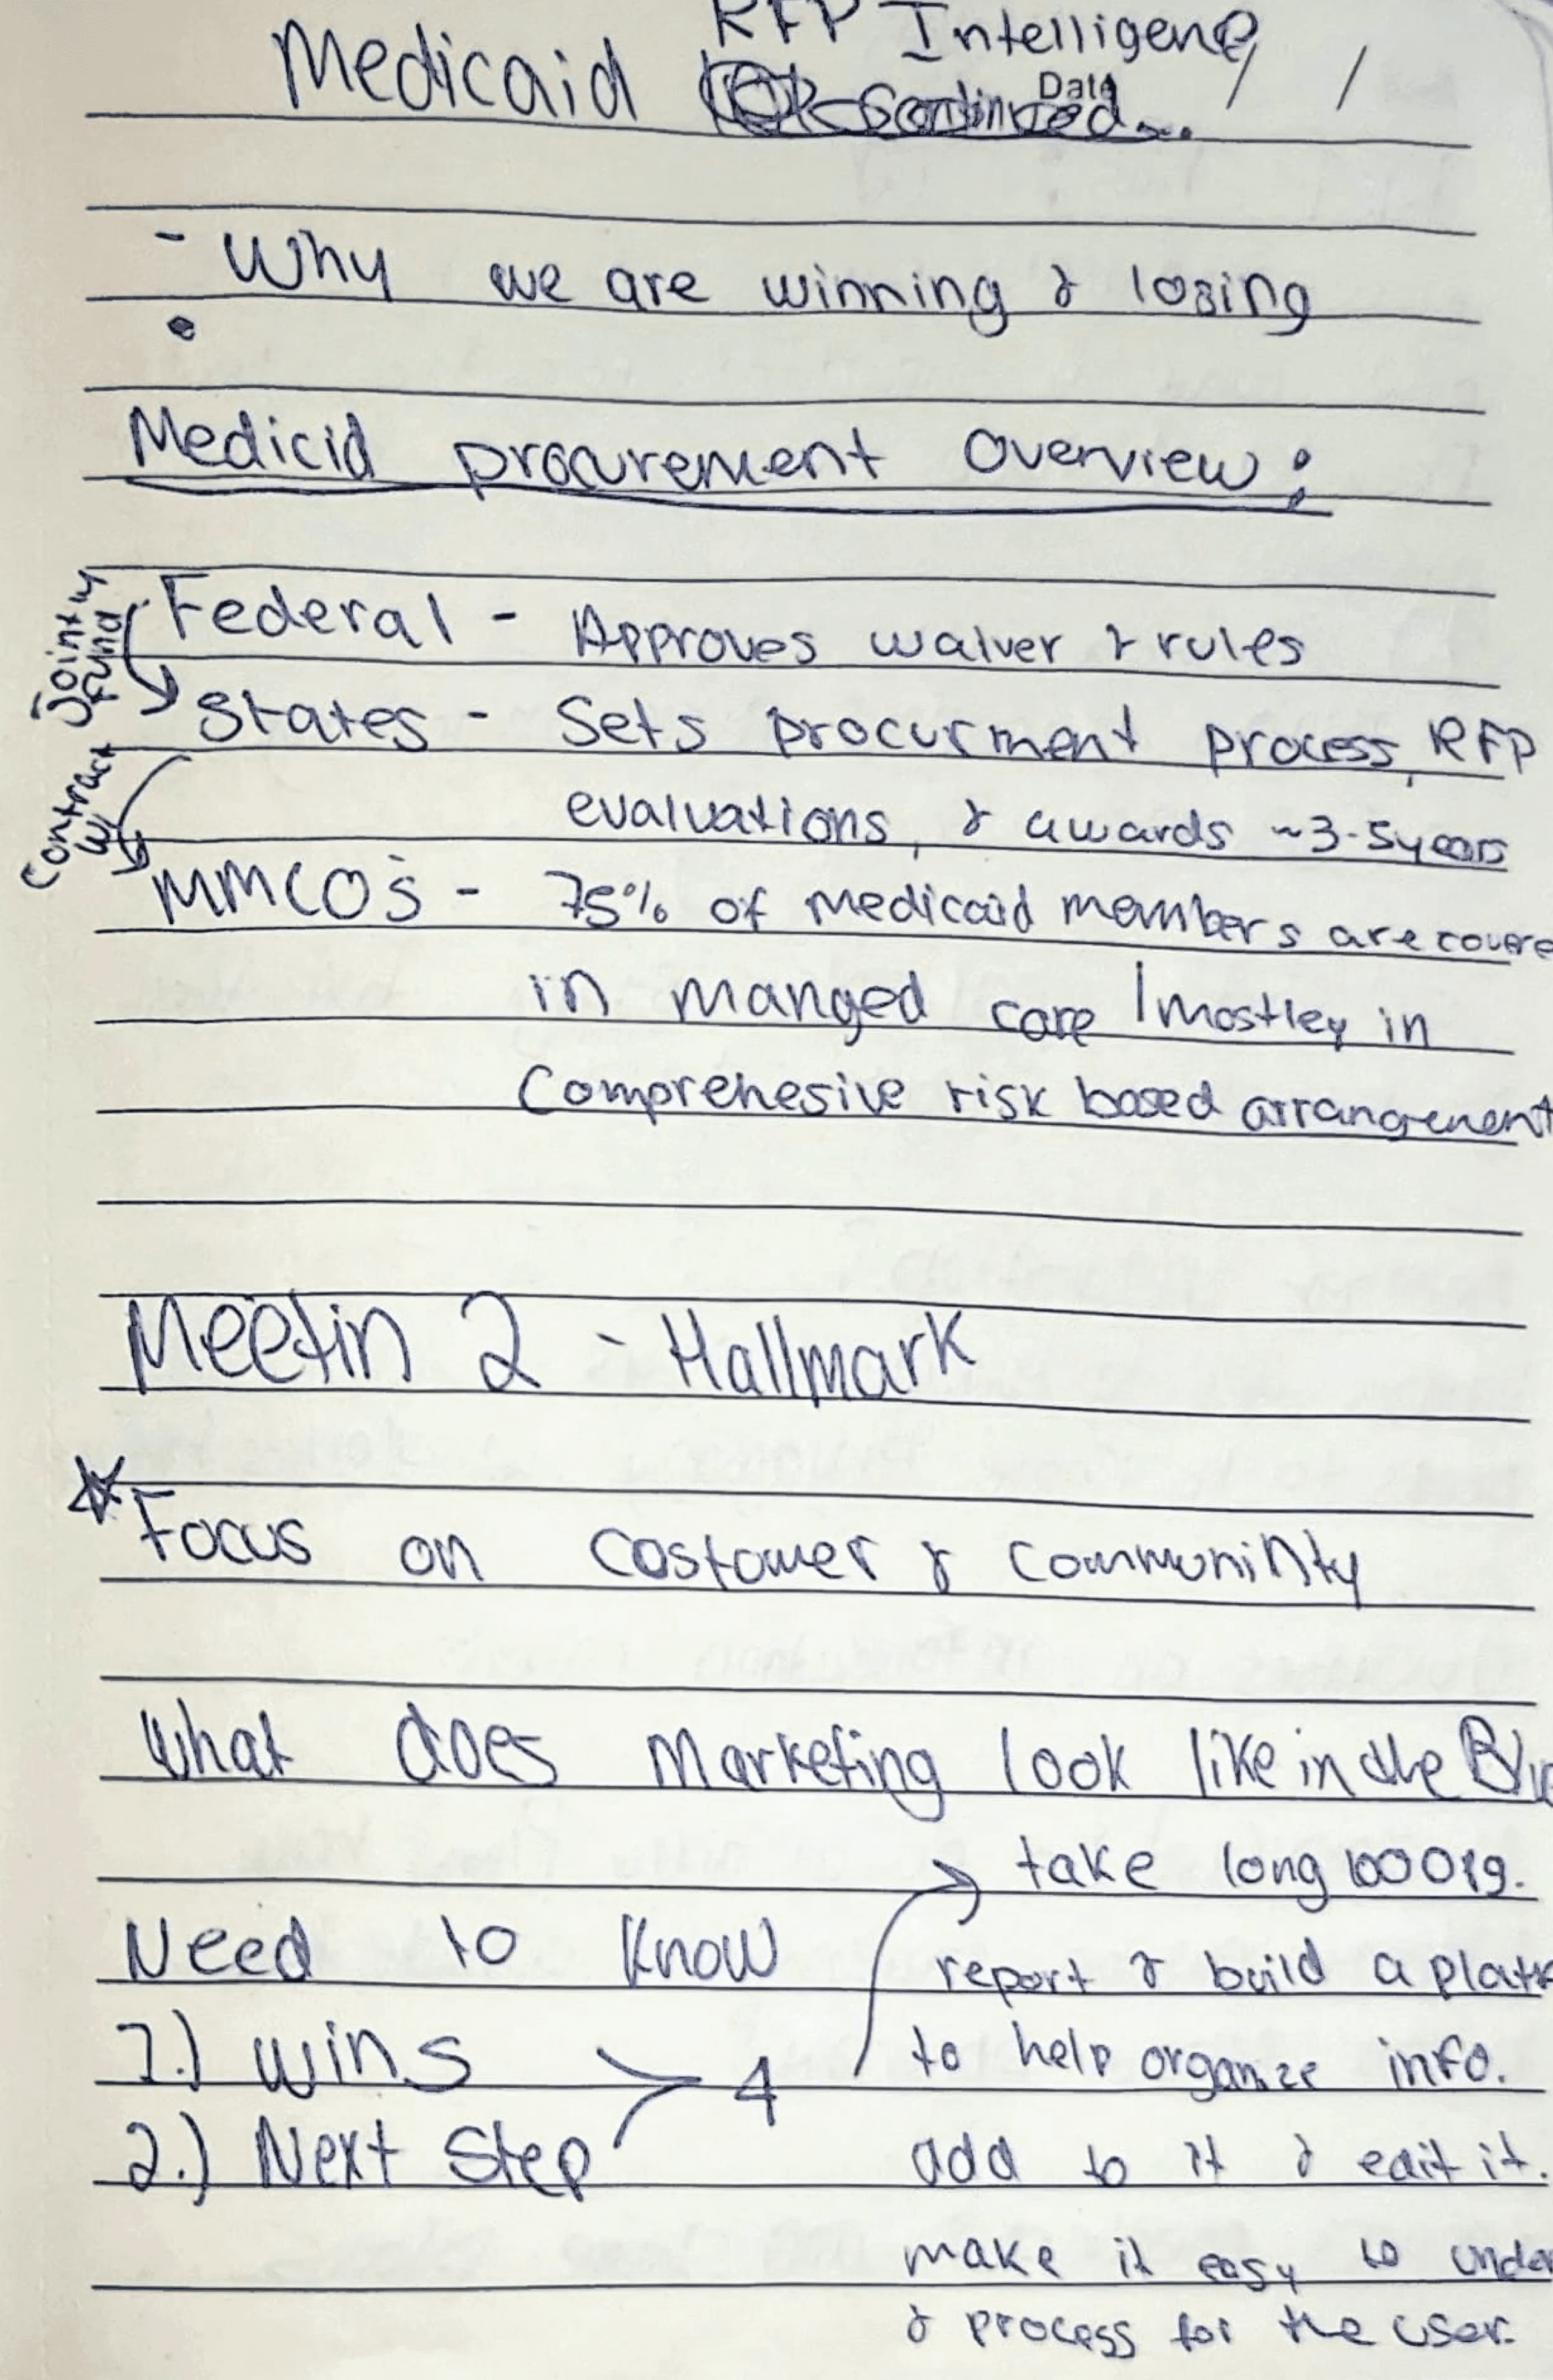 RFP Intelligence
Medicaid
Date / /
- Why we are winning & losing
Medicid procurement overview:
Jointly fund
Federal - Approves waiver & rules
States - Sets procurment process, RFP
evaluations, & awards ~3-5years
Contract w/
MMCO's - 75% of medicaid members are covere
in manged care | mostley in
Comprehesive risk based arrangement
Meetin 2 - Hallmark
Focus on costomer & communinty
What does marketing look like in the Blue
take long 100 pg.
Need to Know
report & build a platf
1.) wins
to help organize info.
4
2.) Next Step
add to it & edit it.
make it easy to under
& process for the user.